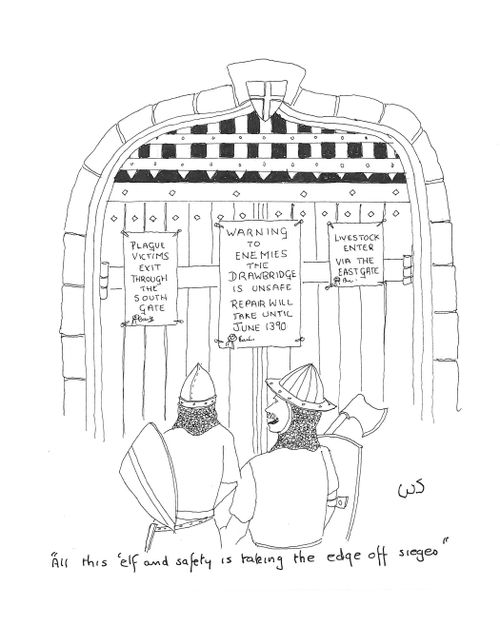 PLAGUE
VICTIMS
EXIT
THROUGH
THE
SOUTH
GATE
WARNING
TO
ENEMIES
THE
DRAWBRIDGE
IS UNSAFE
REPAIR WILL
TAKE UNTIL
JUNE 1390
LIVESTOCK
ENTER
VIA THE
EAST GATE
WS
"All this 'elf and safety is taking the edge off sieges"